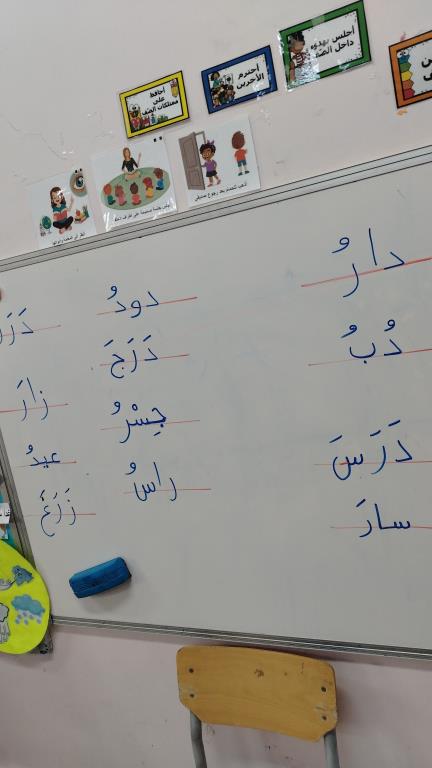 أجلس بهدوء
داخل الصف
أحترم
الآخرين
أحافظ
على
ممتلكات الصف
دارُ
دُبُ
دَرَسَ
سارَ
دودُ
دَرَجَ
جِسْرُ
راسُ
زارَ
عيدُ
زَرَعَ